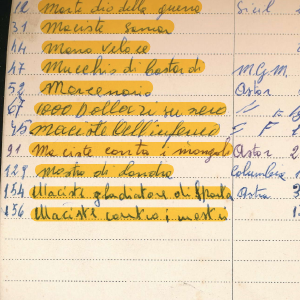 12 Marte dio della guerra Sicil 1
31 Maciste
44 Mano veloce
47 Mucchio di bastardi M.G.M.
52 Mercenario Astor
67 1000 Dollari su nero
75 maciste all'inferno F 2
91 Maciste contro i mongoli Astor 2
129 mostro di Londra Columbia 1
154 Maciste gladiatore di Sparta Astra 3
156 Maciste contro i mostri